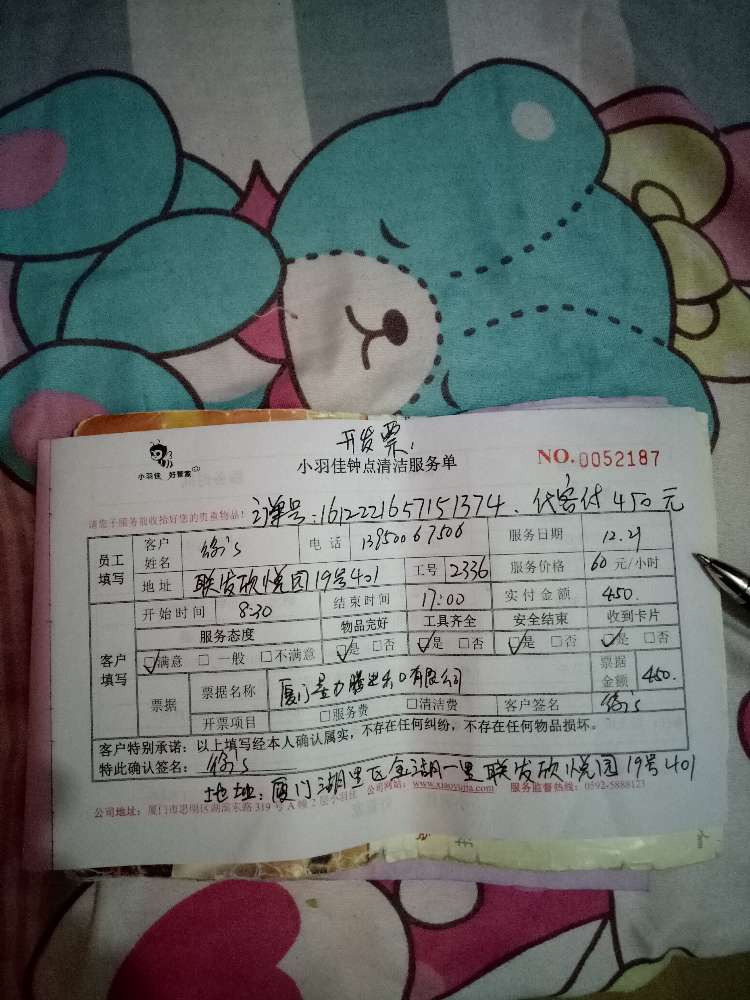 开发票,
小羽佳 好管家
小羽佳钟点清洁服务单
NO.0052187
请您于服务前收拾好您的贵重物品!
订单号:1612221657151374. 代客付450元
员工填写 客户姓名 电话 13950067506 服务日期 12.29
地址 联发欣悦园19号401 工号 2336 服务价格 60元/小时
客户填写 开始时间 8:30 结束时间 17:00 实付金额 450.
服务态度 物品完好 工具齐全 安全结束 收到卡片
☑满意 □一般 □不满意 ☑是 □否 ☑是 □否 ☑是 □否 ☑是 □否
票据 票据名称 厦门 有限公司 票据金额 450.
开票项目 □服务费 □清洁费 客户签名
客户特别承诺:以上填写经本人确认属实,不存在任何纠纷,不存在任何物品损坏。
特此确认签名:
地址:厦门湖里区金湖一里联发欣悦园19号401
公司地址:厦门市思明区湖滨东路319号A幢2层小羽佳 公司网站:www.xiaoyujia.com 服务监督热线:0592-5888123